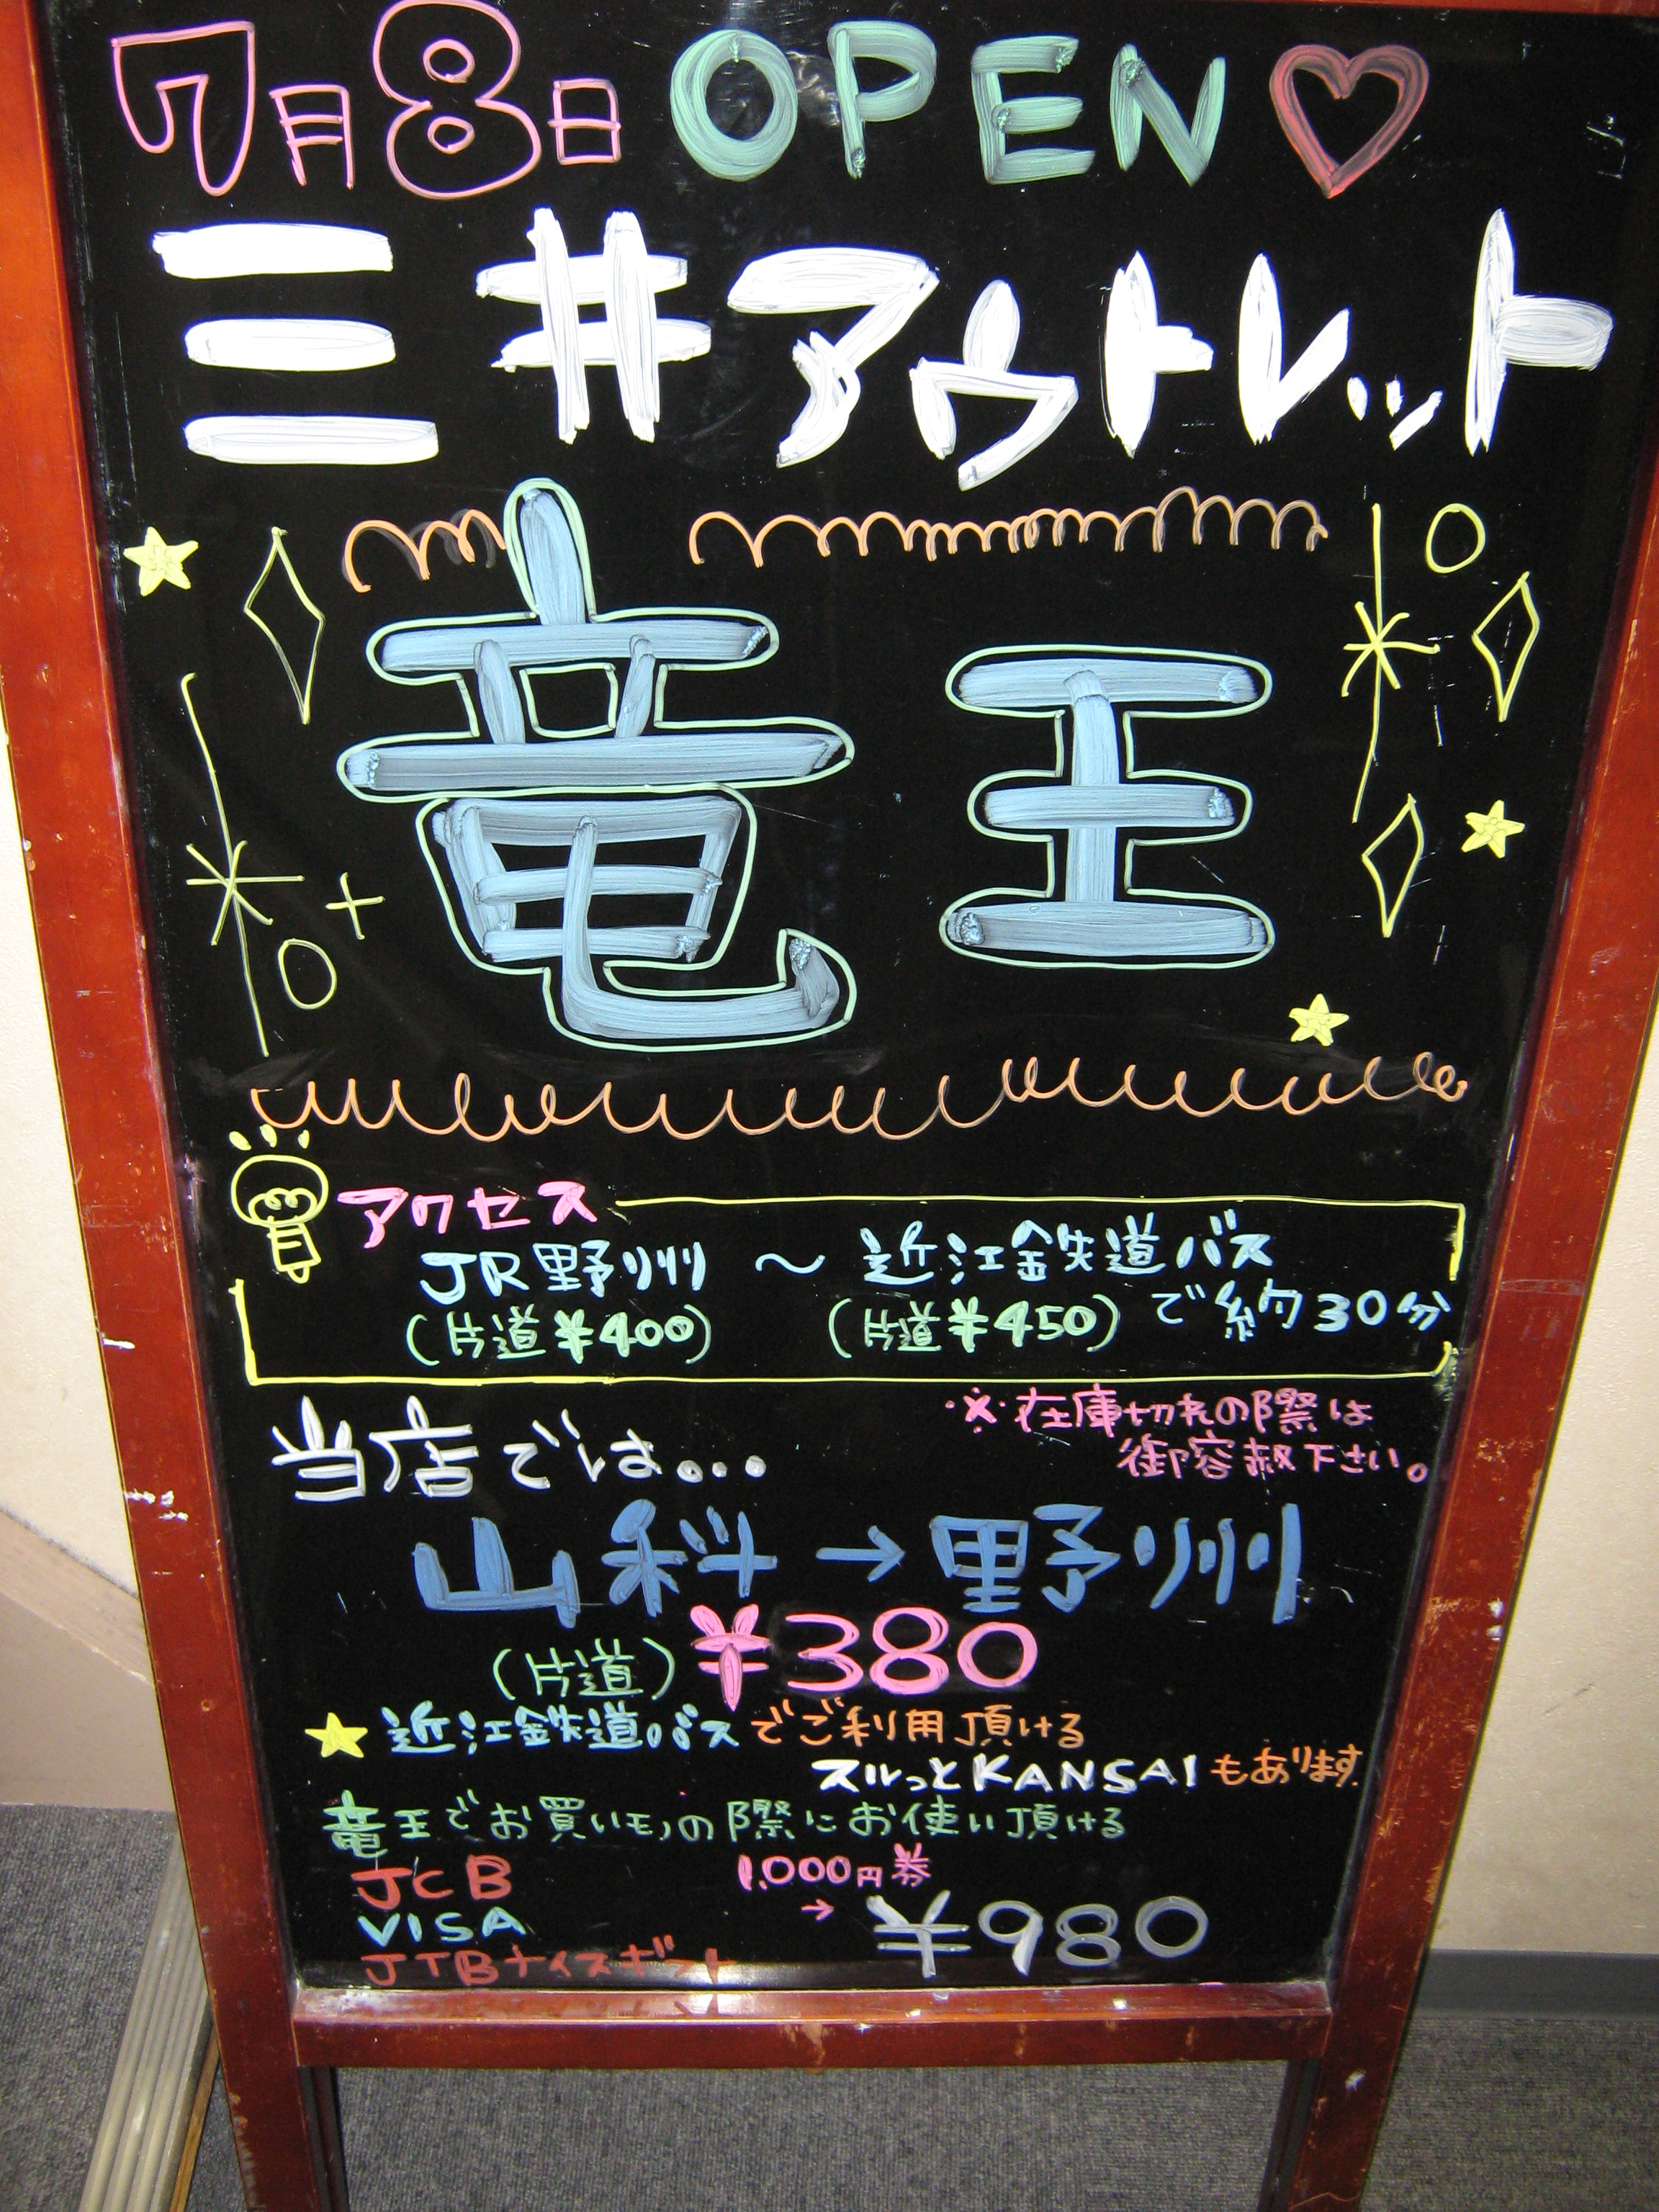 7月8日 OPEN♡
三井アウトレット
竜王
アクセス
JR野洲 〜 近江鉄道バス
(片道¥400) (片道¥450) で約30分
※在庫切れの際は
御容赦下さい。
当店では...
山科→野洲
(片道)¥380
★近江鉄道バスでご利用頂ける
スルっとKANSAIもあります
竜王でお買いモノの際にお使い頂ける
JCB 1,000円券
VISA → ¥980
JTBナイスギフト